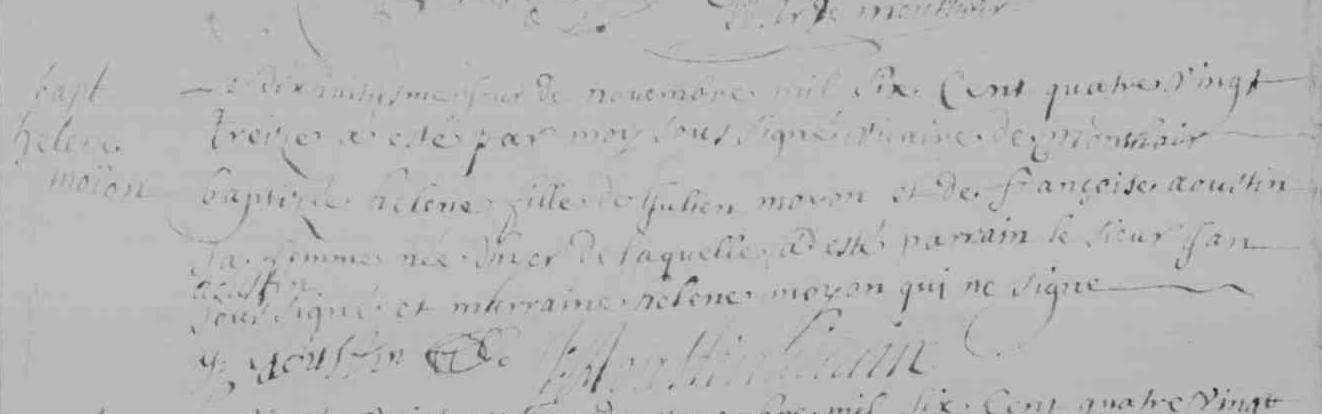 de montoir
bapt
helene
moïon
Le dixhuitiesme jour de novembre mil six Cent quatre Vingt
treize a esté par moy sous signé vicaire de Montoir
baptizée helene fille de Julien moyon et de françoise aoustin
sa femme née d'hier de laquelle a esté parrain le sieur Jan
aoustin
sous signé et marraine helene moyon qui ne signe
J Aoustin
mil six Cent quatre Vingt